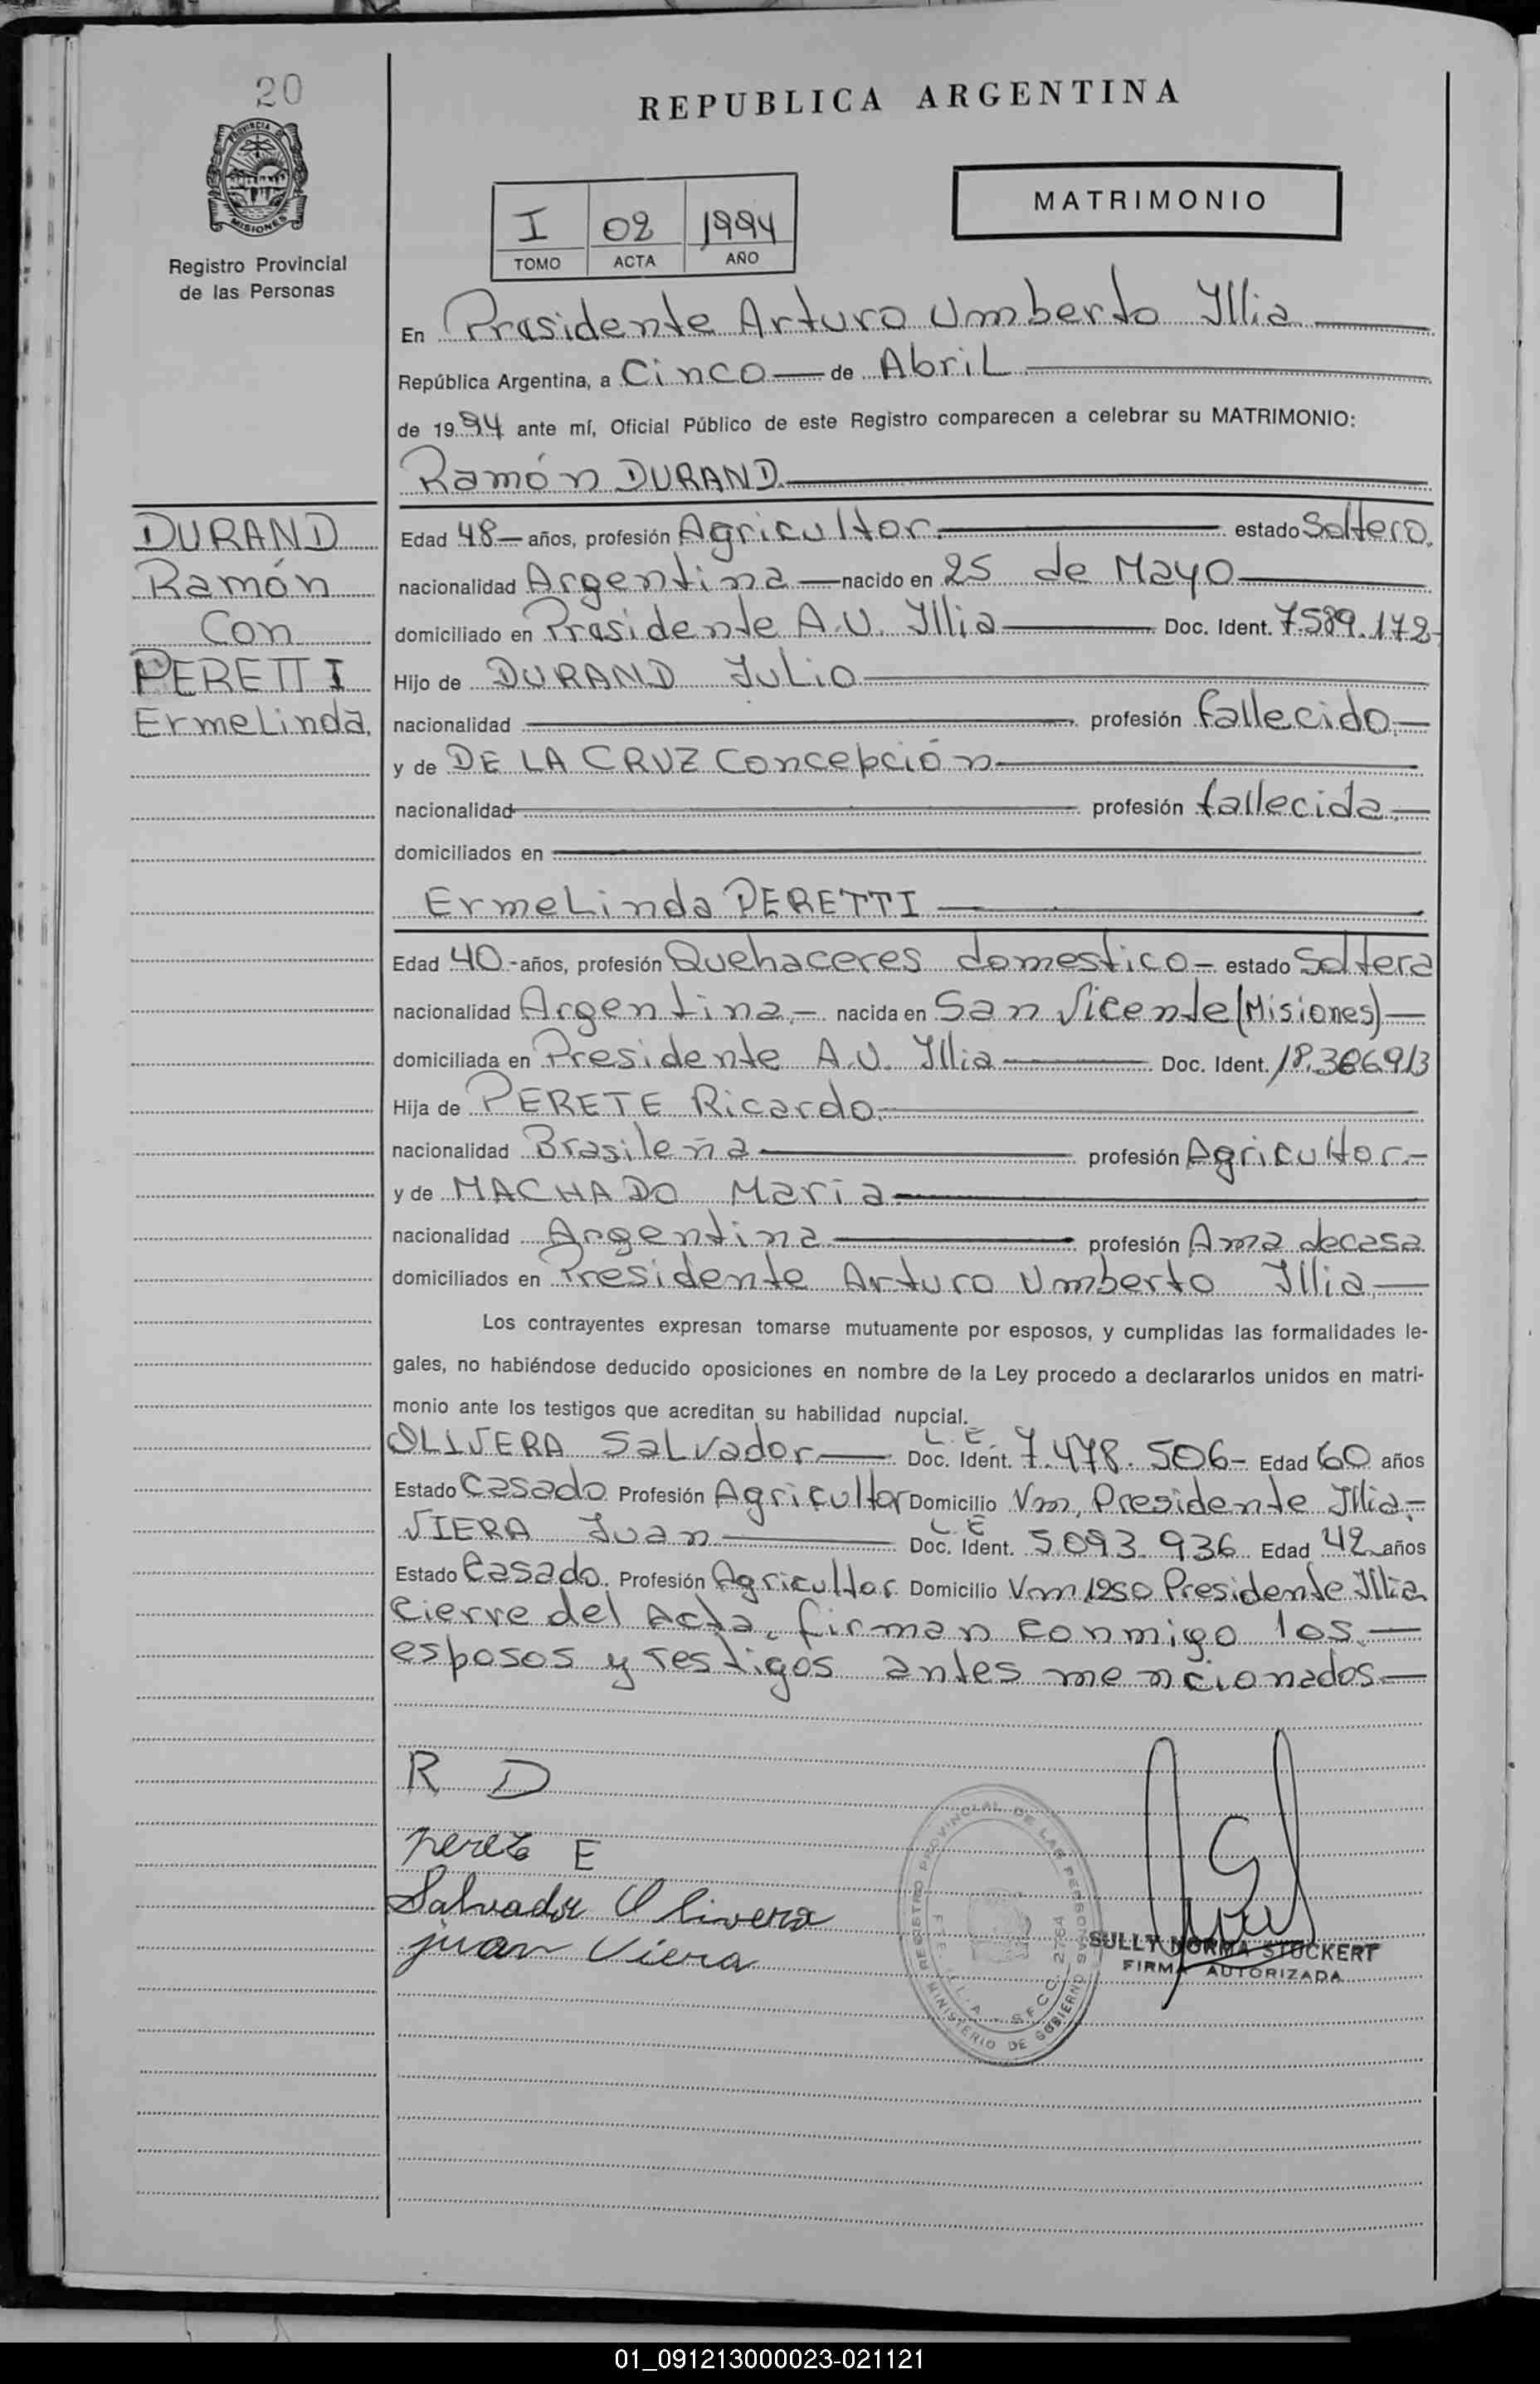 20
PROVINCIA DE
MISIONES
Registro Provincial
de las Personas
REPUBLICA ARGENTINA
MATRIMONIO
I 02 1994
TOMO ACTA AÑO
En Presidente Arturo Umberto Illia
República Argentina, a Cinco de Abril
de 1994 ante mí, Oficial Público de este Registro comparecen a celebrar su MATRIMONIO:
Ramón DURAND
DURAND
Ramón
Con
PERETTI
Ermelinda
Edad 48 años, profesión Agricultor. estado Soltero.
nacionalidad Argentina nacido en 25 de Mayo
domiciliado en Presidente A.U. Illia Doc. Ident. 7.589.172
Hijo de DURAND Julio
nacionalidad profesión fallecido
y de DE LA CRUZ Concepción
nacionalidad profesión fallecida
domiciliados en
Ermelinda PERETTI
Edad 40 años, profesión Quehaceres domestico estado Soltera
nacionalidad Argentina nacida en San Vicente (Misiones)
domiciliada en Presidente A.U. Illia Doc. Ident.
Hija de PERETE Ricardo
nacionalidad Brasileña profesión Agricultor
y de MACHADO Maria
nacionalidad Argentina profesión Ama de casa
domiciliados en Presidente Arturo Umberto Illia
Los contrayentes expresan tomarse mutuamente por esposos, y cumplidas las formalidades le-
gales, no habiéndose deducido oposiciones en nombre de la Ley procedo a declararlos unidos en matri-
monio ante los testigos que acreditan su habilidad nupcial.
OLIVERA Salvador L.E. Doc. Ident. 7.478.506 Edad 60 años
Estado Casado Profesión Agricultor Domicilio Vm, Presidente Illia
VIERA Juan L E Doc. Ident. 5.093.936 Edad 42 años
Estado Casado. Profesión Agricultor Domicilio Vm 1250 Presidente Illia
Cierre del Acta, firman conmigo los
esposos y testigos antes mencionados
R D
perez E
Salvador Olivera
juan Viera
REGISTRO PROVINCIAL DE LAS PERSONAS
MINISTERIO DE GOBIERNO
SULLY NORMA STUCKERT
FIRMA AUTORIZADA
01_091213000023-021121